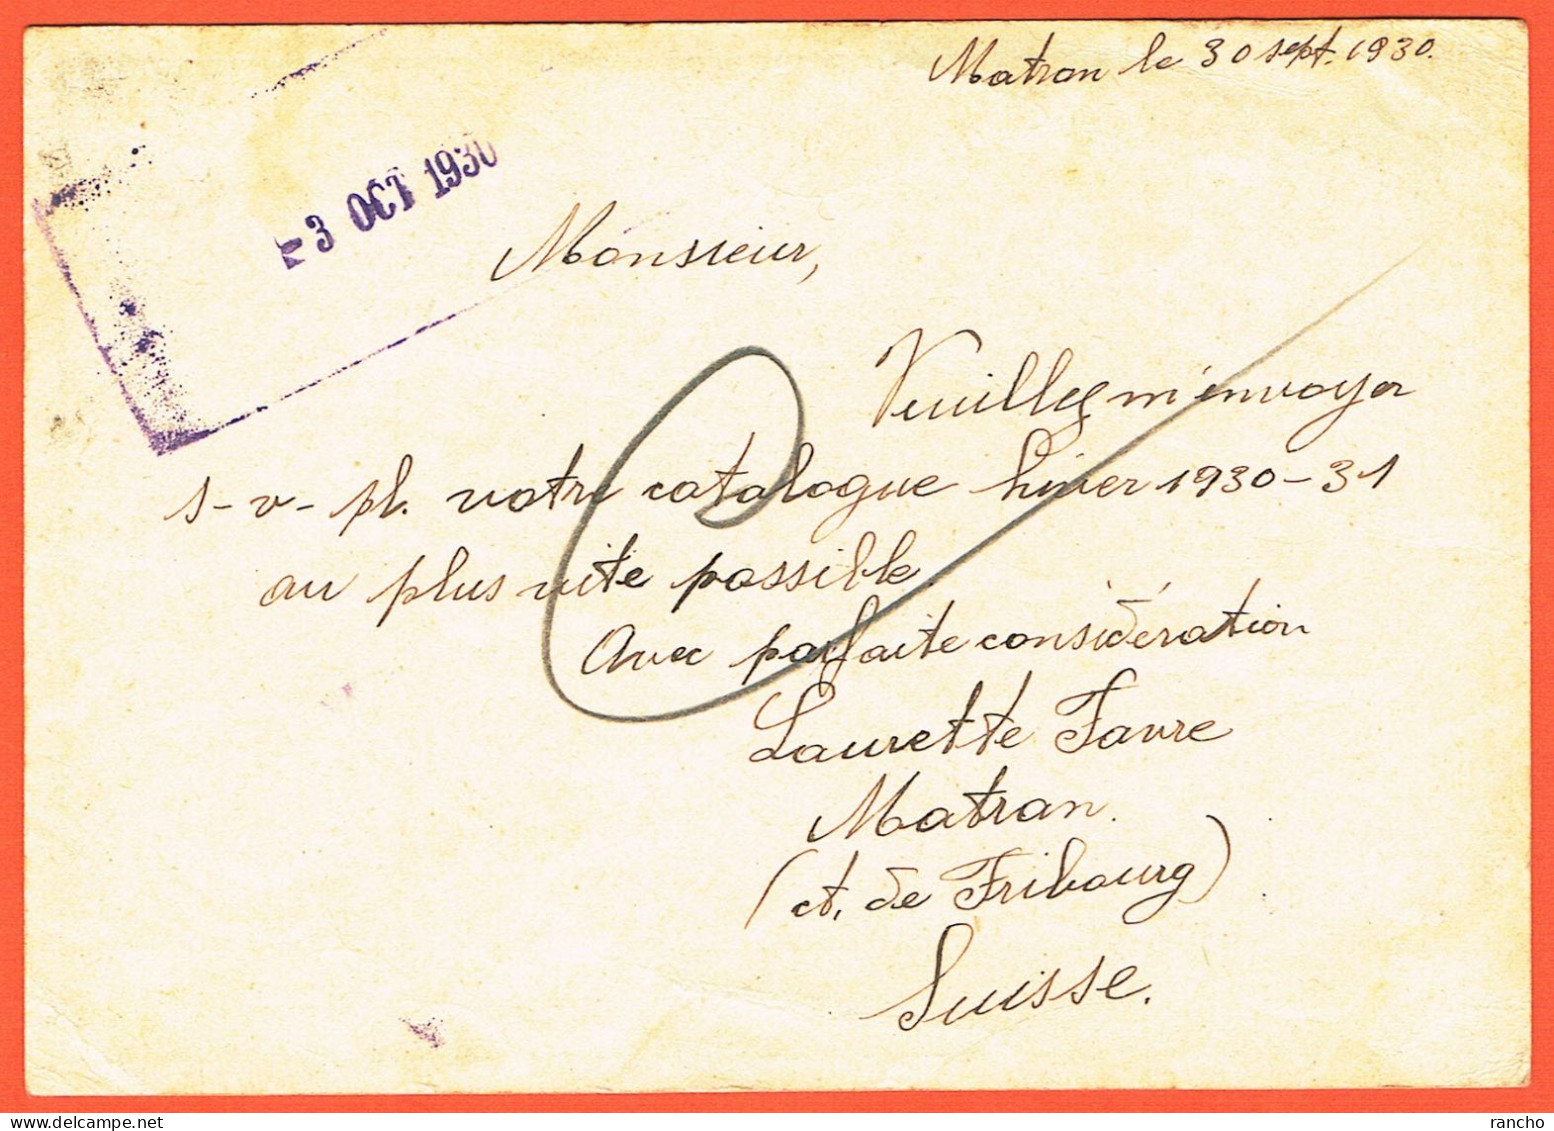 Matran le 30 sept. 1930.
3 OCT 1930
Monsieur,
Veuillez m'envoyer
s-v-pl. votre catalogue hiver 1930-31
au plus vite possible.
Avec parfaite considération
Laurette Favre
Matran.
(ct. de Fribourg)
Suisse.
delcampe.net
rancho